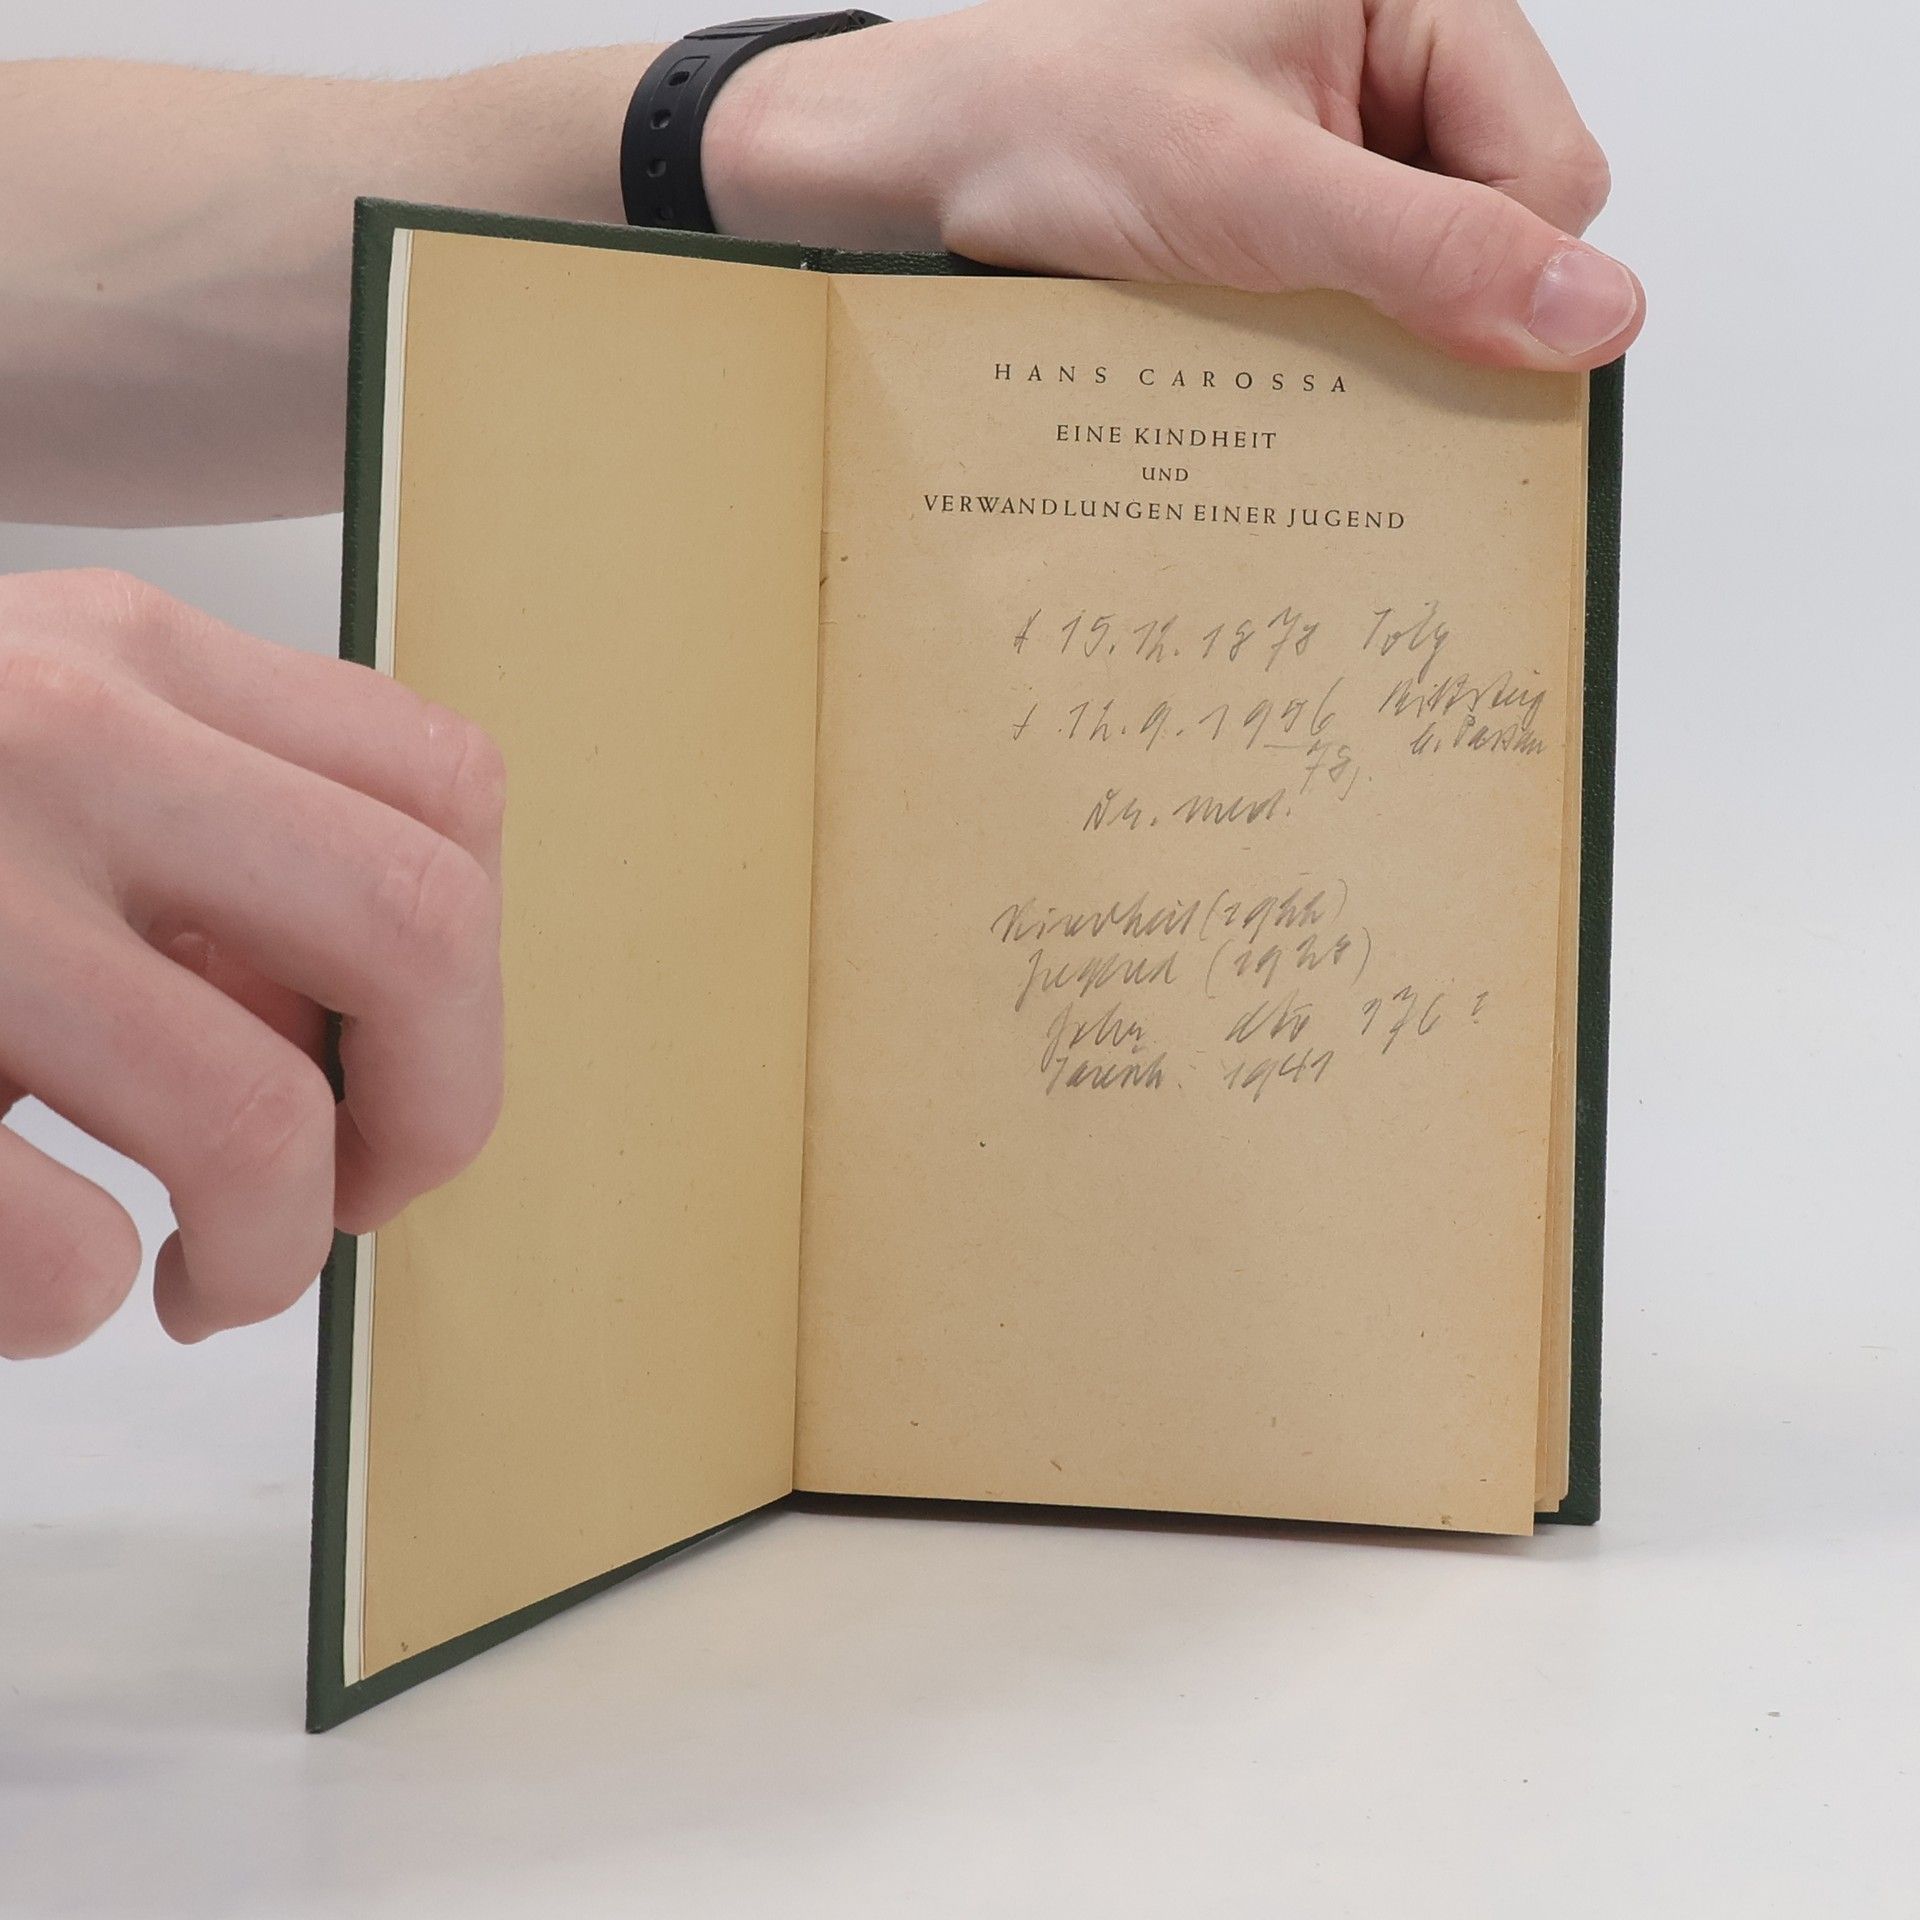 HANS CAROSSA
EINE KINDHEIT
UND
VERWANDLUNGEN EINER JUGEND
* 15.12.1878 Tölz
+ 12.9.1956 Rittsteig
b. Passau
78j.
Dr. med.
Kindheit (1922)
Jugend (1928)
dto 176?
1941